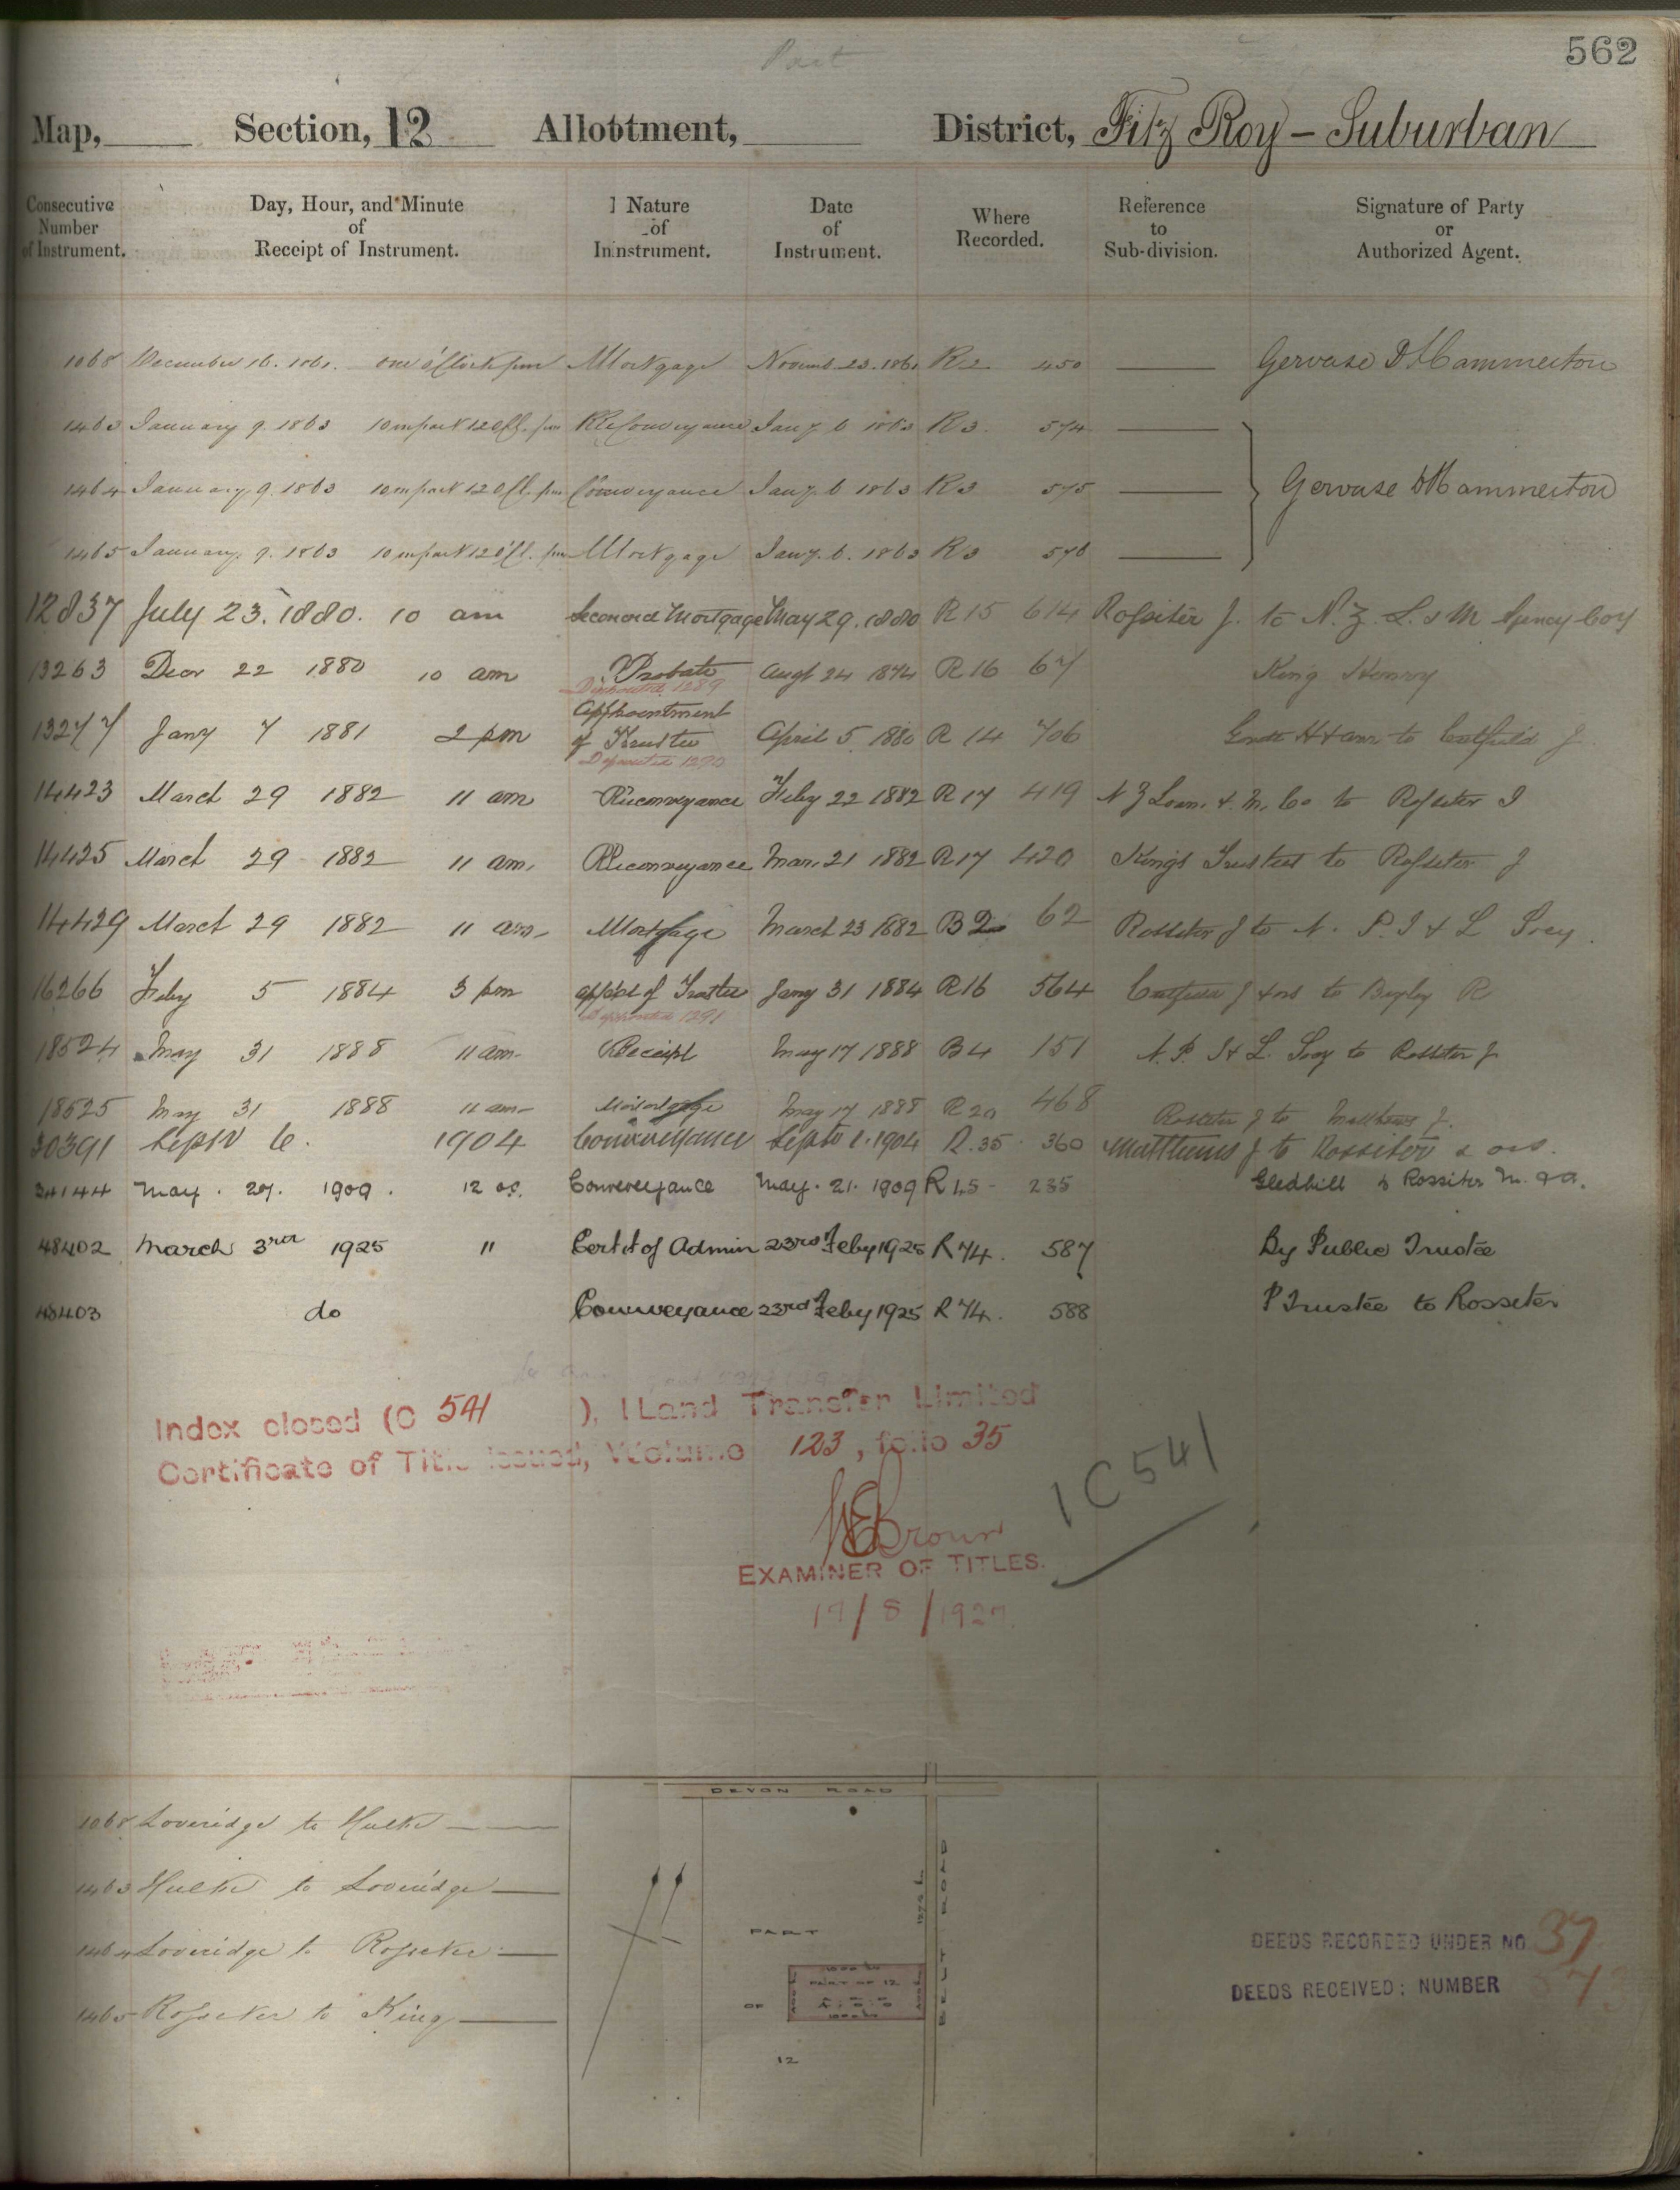 Part
562
Map, Section, 12 Allotment, District, Fitz Roy – Suburban
Consecutive Number of Instrument. Day, Hour, and Minute of Receipt of Instrument. Nature of Instrument. Date of Instrument. Where Recorded. Reference to Sub-division. Signature of Party or Authorized Agent.
1068 December 16. 1861. one o'Clock pm Mortgage Novemb. 23. 1861 R2 450 Gervase D Hammerton
1463 January 9. 1863 10 m past 12 oCl. pm ReConveyance Jany 6 1863 R3. 574
1464 January 9. 1863 10 m past 12 oCl. pm Conveyance Jany. 6 1863 R3 575 Gervase D Hammerton
1465 January. 9. 1863 10 m past 12 oCl. pm Mortgage Jany. 6. 1863 R3 576
12837 July 23. 1880. 10 am Second Mortgage May 29. 1880 R 15 614 Rossiter J. to N. Z. L. & M Agency Coy
13263 Decr 22 1880 10 am Probate Augt 24 1874 R 16 67 King Henry
Deposited 1289
13277 Jany 7 1881 2 pm Appointment of Trustee April 5 1880 R 14 706 to Catfield J.
Deposited 1290
14423 March 29 1882 11 am Reconveyance Feby 22 1882 R 17 419 N Z Loan. & M. Co to Rossiter J
14425 March 29 1882 11 am. Reconveyance Mar. 21 1882 R 17 420 Kings Trustees to Rossiter J
14429 March 29 1882 11 am. Mortgage March 23 1882 B 2 62 Rossiter J to N. P. I & L Socy.
16266 Feby 5 1884 3 pm app't of Trustee Jany 31 1884 R16 564 Catfield J & ors to Bayley R
Deposited 1291
18524 May 31 1888 11 am. Receipt May 17 1888 B 4 151 N. P. I & L. Socy to Rossiter J.
18525 May 31 1888 11 am. Mortgage May 17 1888 R 20 468 Rossiter J to Matthews J.
30391 Septr 6. 1904 Conveyance Septr 1. 1904 R. 35. 360 Matthews J to Rossiter & ors.
34144 May. 27. 1909. 12 oc. Conveyance May. 21. 1909 R 45 235 Gledhill to Rossiter M. & A.
48402 March 3rd 1925 " Cert of Admin 23rd Feby 1925 R 74. 587 By Public Trustee
48403 do Conveyance 23rd Feby 1925 R 74. 588 P Trustee to Rossiter
Index closed (C 541 ), Land Transfer Limited
Certificate of Title issued, Volume 123, folio 35
1 C 541
EXAMINER OF TITLES.
19/8/1927.
DEVON ROAD
1068 Loveridge to Hulke
1463 Hulke to Loveridge
1464 Loveridge to Rossiter
1465 Rossiter to King
BELT ROAD
PART
OF
12
PART OF 12
DEEDS RECORDED UNDER NO 37
DEEDS RECEIVED: NUMBER